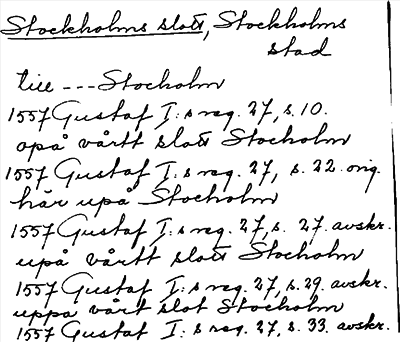 Stockholms slott, Stockholms
stad
till --- Stocholm
1557 Gustaf I:s reg. 27, s. 10.
opå vårtt slott Stocholm
1557 Gustaf I:s reg. 27, s. 22. orig.
här upå Stocholm
1557 Gustaf I:s reg. 27, s. 27. avskr.
upå vårtt slott Stocholm
1557 Gustaf I:s reg. 27, s. 29. avskr.
uppå vårt slot Stocholm
1557 Gustaf I:s reg. 27, s. 33. avskr.